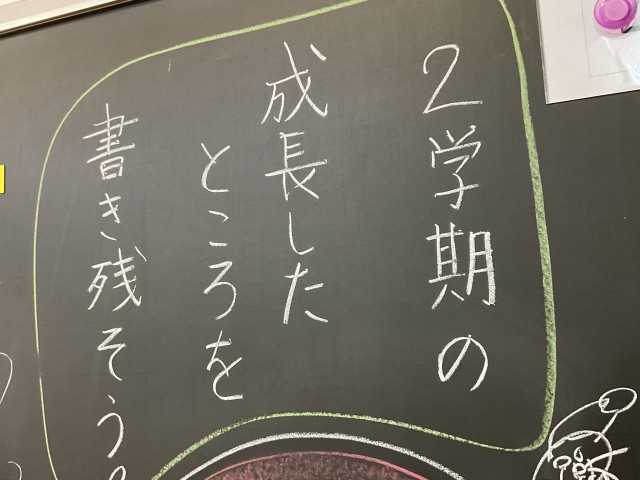 2学期の
成長した
ところを
書き残そう。